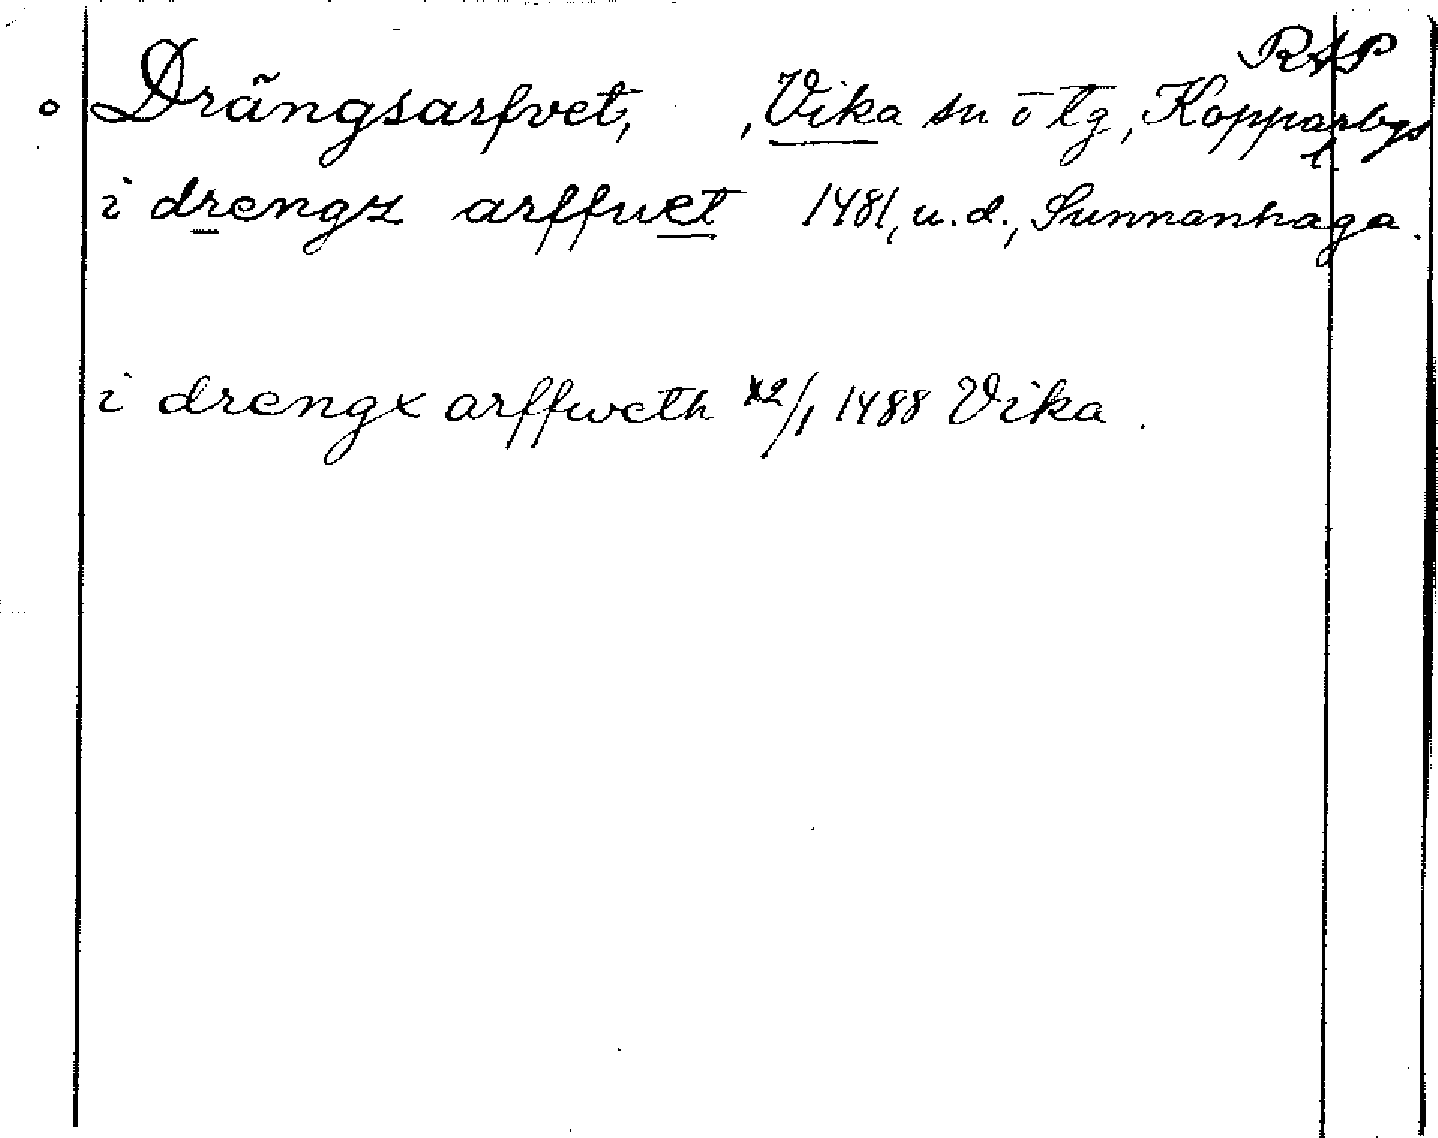 RAP
Drängsarfvet, , Vika sn o tg, Kopparbgs l.
i drengz arffuet 1481, u. d., Sunnanhaga.
i drengx arffweth 22/1 1488 Vika.